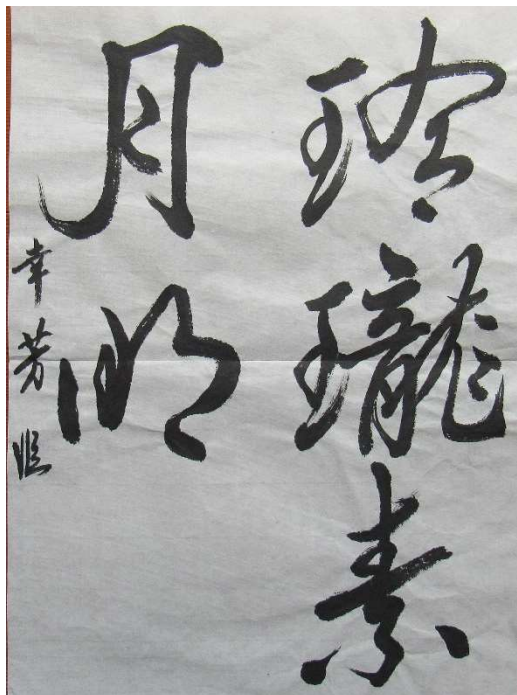 玲瓏素
月明
幸芳臨